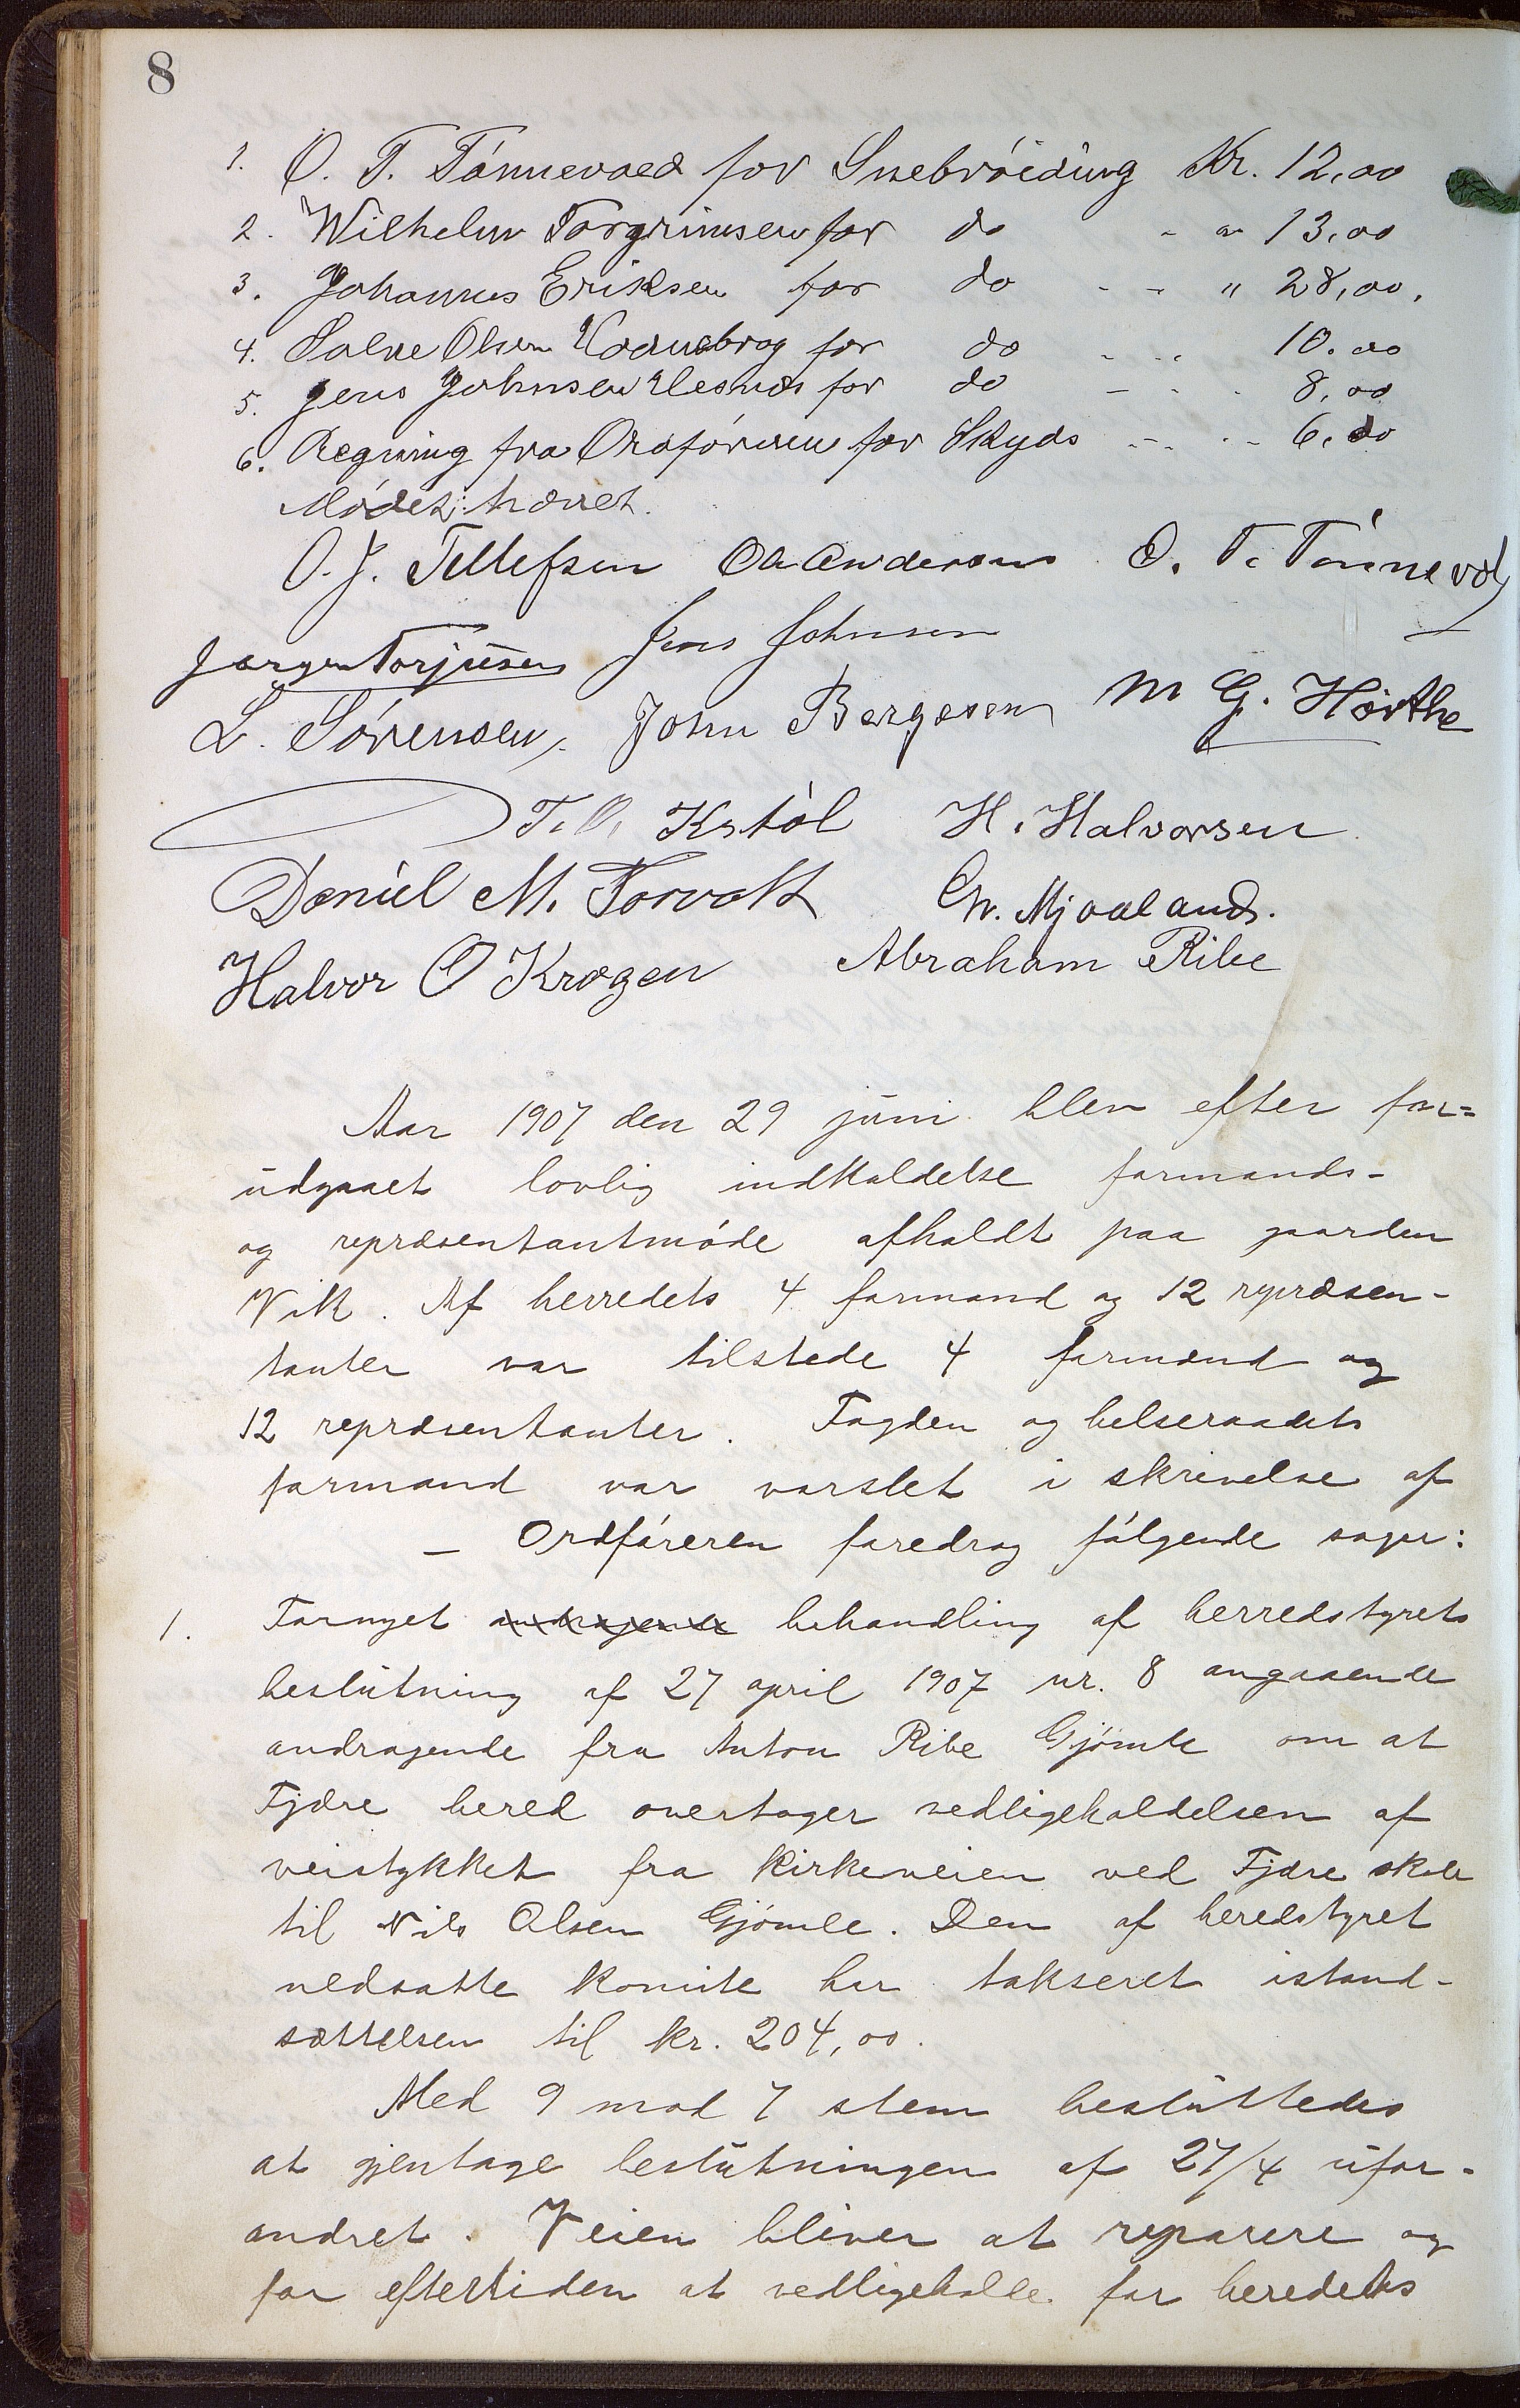 8
1. O. T. Tönnevold for Snebröiding Kr. 12,00
2. Wilhelm Torgrimsen for do - " 13,00
3. Johannes Eriksen for do - - " 28,00.
4. Salve Olsen for do - - 10.00
5. Jens Johnsen Vesnes for do - - - 8,00
6. Regning fra Ordföreren for Skyds - - - - 6,00
Mödet hævet.
O. J. Tellefsen Ole Andersen O. T. Tönnevold
Jørgen Torjusen Jens Johnsen
L. Sörensen, John Bergesen M G. Hörthe
T. O. Kstöl H. Halvorsen
Daniel M. Torvolt Chr. Mjaaland.
Halvor O Krogen Abraham Ribe
Aar 1907 den 29 juni blev efter for=
udgaaet lovlig indkaldelse formands-
og repræsentantmöde afholdt paa gaarden
Vik. Af herredets 4 formænd og 12 repræsen-
tanter var tilstede 4 formænd og
12 repræsentanter. Fogden og helseraadets
formand var varslet i skrivelse af
— Ordföreren foredrog fölgende sager:
1. Fornyet andragende behandling af herredstyrets
beslutning af 27 april 1907 nr. 8 angaaende
andragende fra Anton Ribe Gjömle om at
Fjære hered overtager vedligeholdelsen af
veistykket fra Kirkeveien ved Fjære skole
til Nils Olsen Gjömle. Den af heredstyret
nedsatte komite har takseret istand-
sættelsen til kr. 204,00.
Med 9 mod 7 stem besluttedes
at gjentage beslutningen af 27/4 ufor-
andret. Veien bliver at reparere og
for eftertiden at vedligeholde for heredets